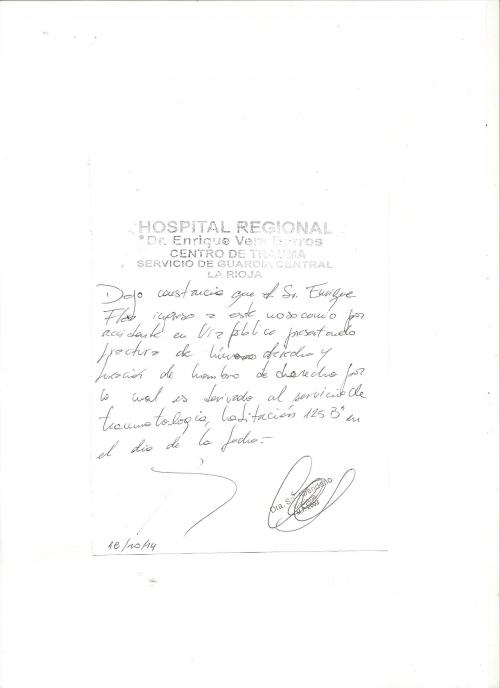 HOSPITAL REGIONAL
"Dr. Enrique Vera Barros
CENTRO DE TRAUMA
SERVICIO DE GUARDIA CENTRAL
LA RIOJA
Dejo constancia que el Sr. Enrique
ingreso a este nosocomio por
accidente en Vía pública presentando
fractura de húmero derecho y
luxación de hombro de derecho por
lo cual es derivado al servicio de
traumatología, habitación 125 B" en
el día de la fecha.-
Dra. S.
18/10/14